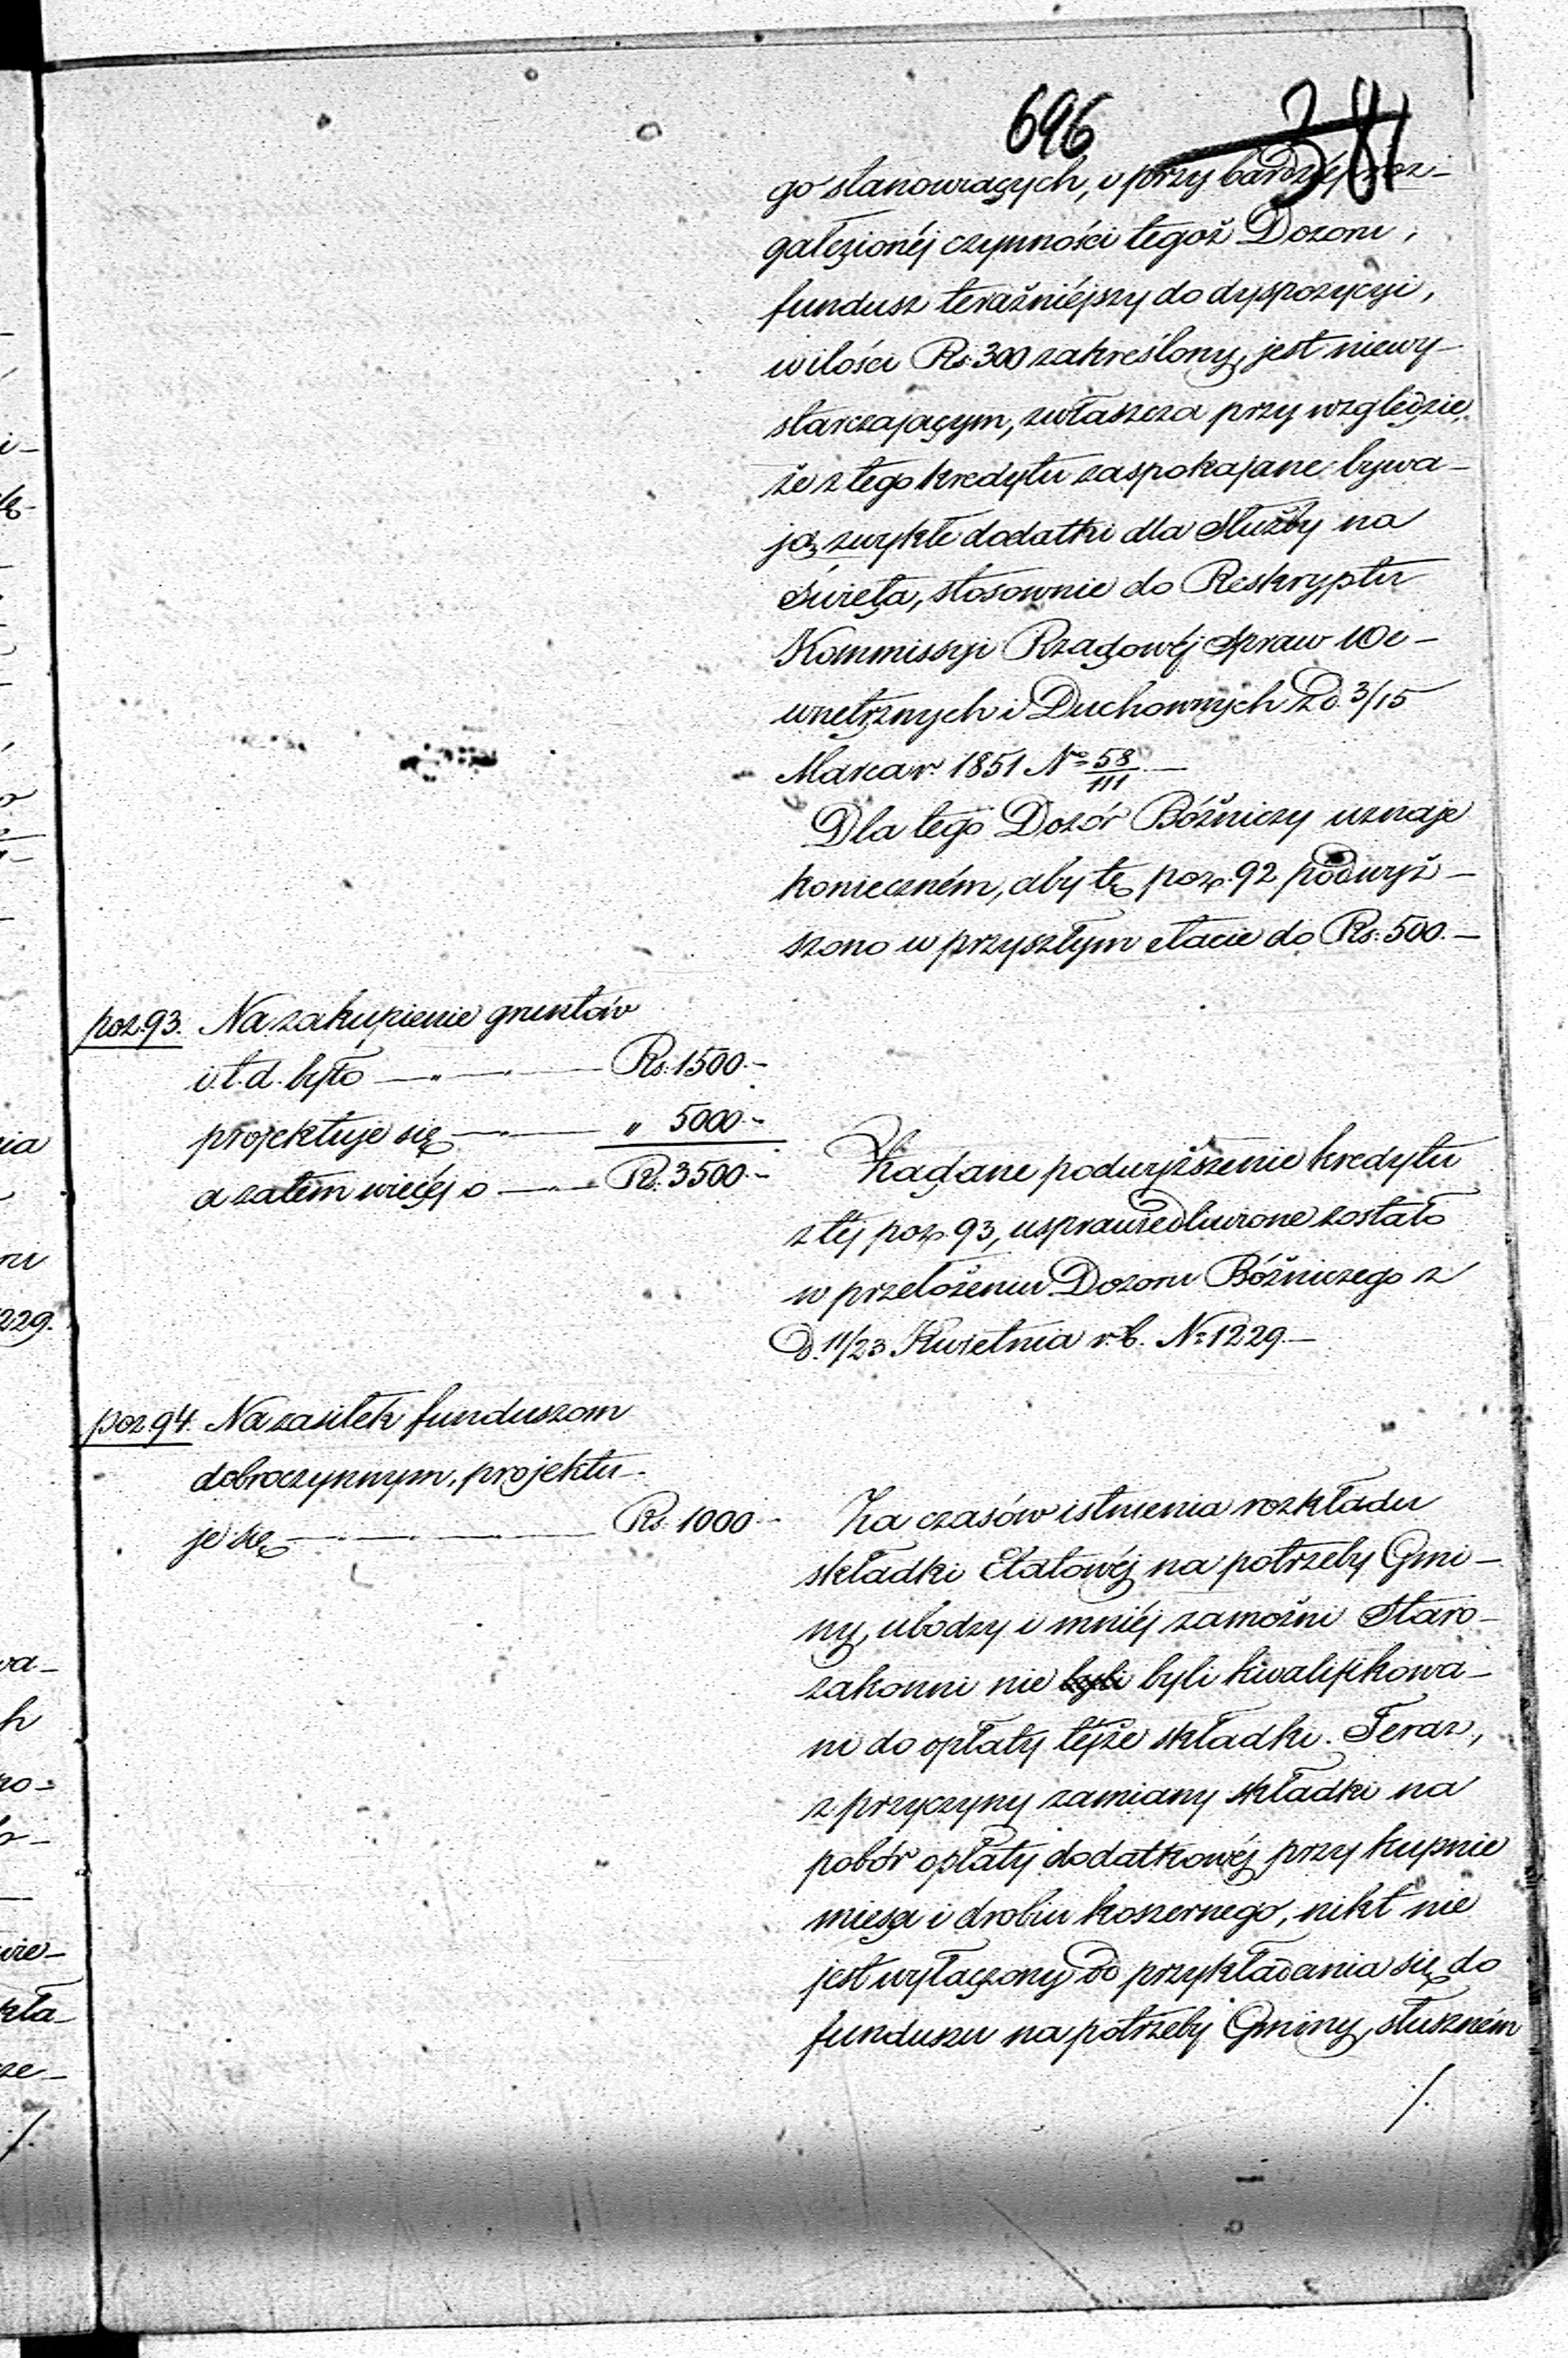 696 381
go stanowiących, i przy bardziéj roz-
gałęzionéj czynności tegoż Dozoru,
fundusz teraźniéjszy do dyspozycyi,
w ilości Rs. 300 zakreślony, jest niewy-
starczającym, zwłaszcza przy względzie,
że z tego kredytu zaspokajane bywa-
ją zwykłe dodatki dla Służby na
Święta, stosownie do Reskryptu
Kommissyi Rządowéj Spraw We-
wnętrznych i Duchownych z d. 3/15
Marca r. 1851 № 58/111 —
Dla tego Dozór Bóżniczy uznaje
konieczném, aby tę poz. 92 podwyż-
szono w przyszłym etacie do Rs. 500. —
poz. 93. Na zakupienie gruntów
i t. d. było — „ — Rs. 1500. —
projektuje się — „ — „ 5000. —
a zatém więcéj o — „ — Rs. 3500. —
Żądane podwyższenie kredytu
z téj poz. 93, usprawiedliwione zostało
w przełożeniu Dozoru Bóżniczego z
d. 11/23 Kwietnia r. b. № 1229 —
poz. 94. Na zasiłek funduszom
dobroczynnym, projektu-
je się — Rs. 1000 —
Za czasów istnienia rozkładu
składki Etatowéj na potrzeby Gmi-
ny, ubodzy i mniéj zamożni Staro-
zakonni nie byli byli kwalifikowa-
ni do opłaty téjże składki. Teraz,
z przyczyny zamiany składki na
pobór opłaty dodatkowéj przy kupnie
mięsa i drobiu koszernego, nikt nie
jest wyłączony od przykładania się do
funduszu na potrzeby Gminy, słuszném
./.